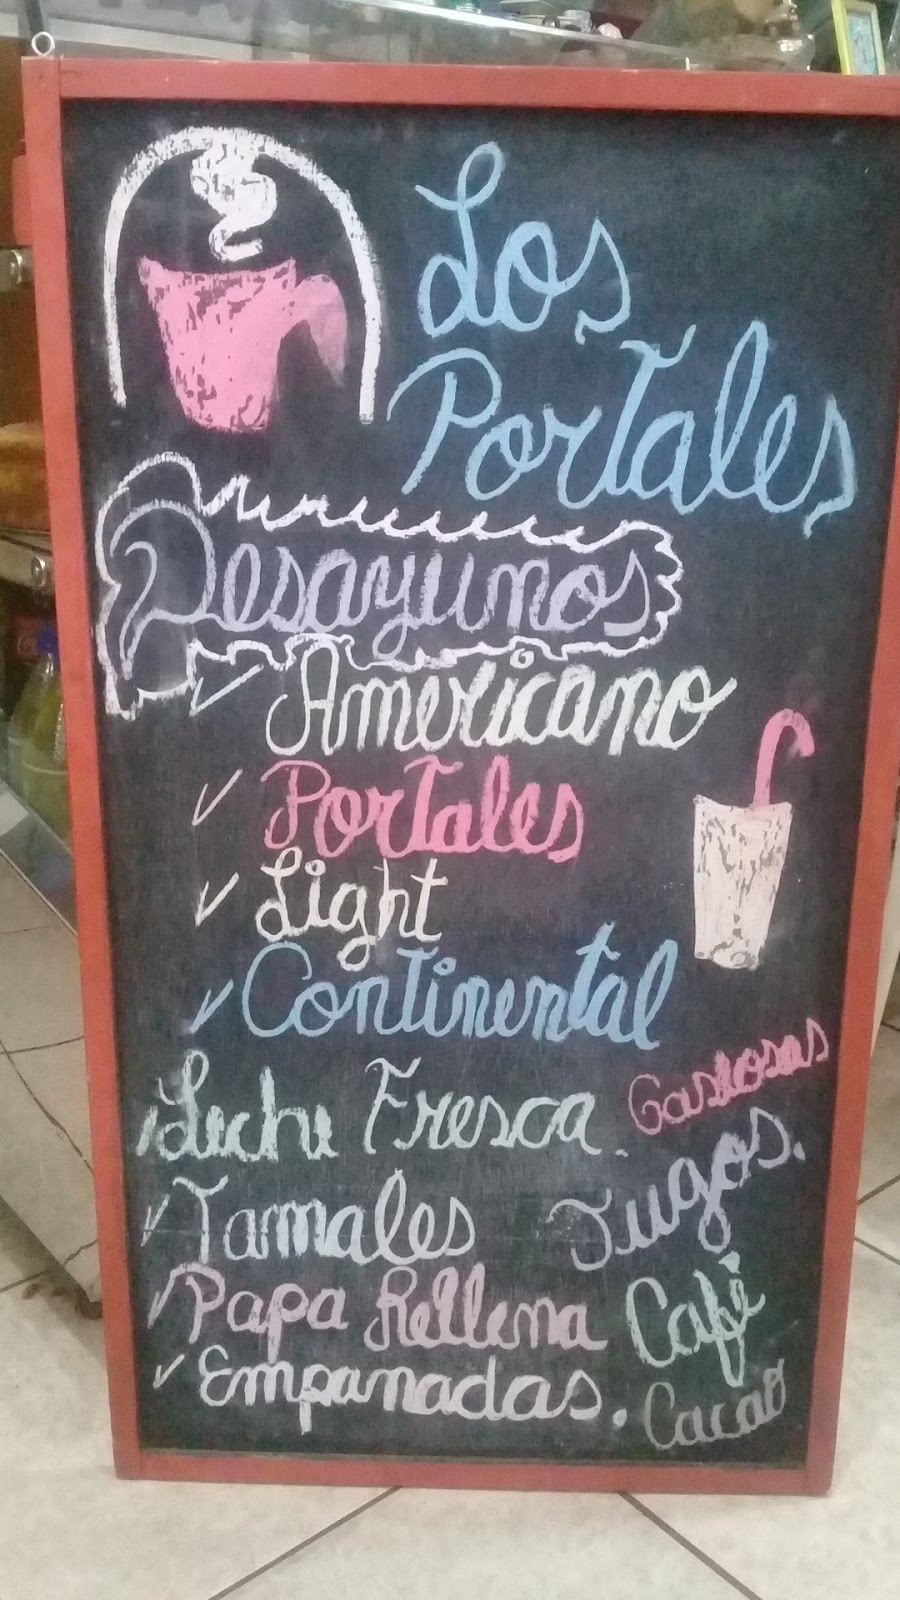 Los
Portales
Desayunos
Americano
Portales
Light
Continental
Leche Fresca.
Gaseosas
Tamales
Jugos.
Papa Rellena
Café
Empanadas.
Cacao